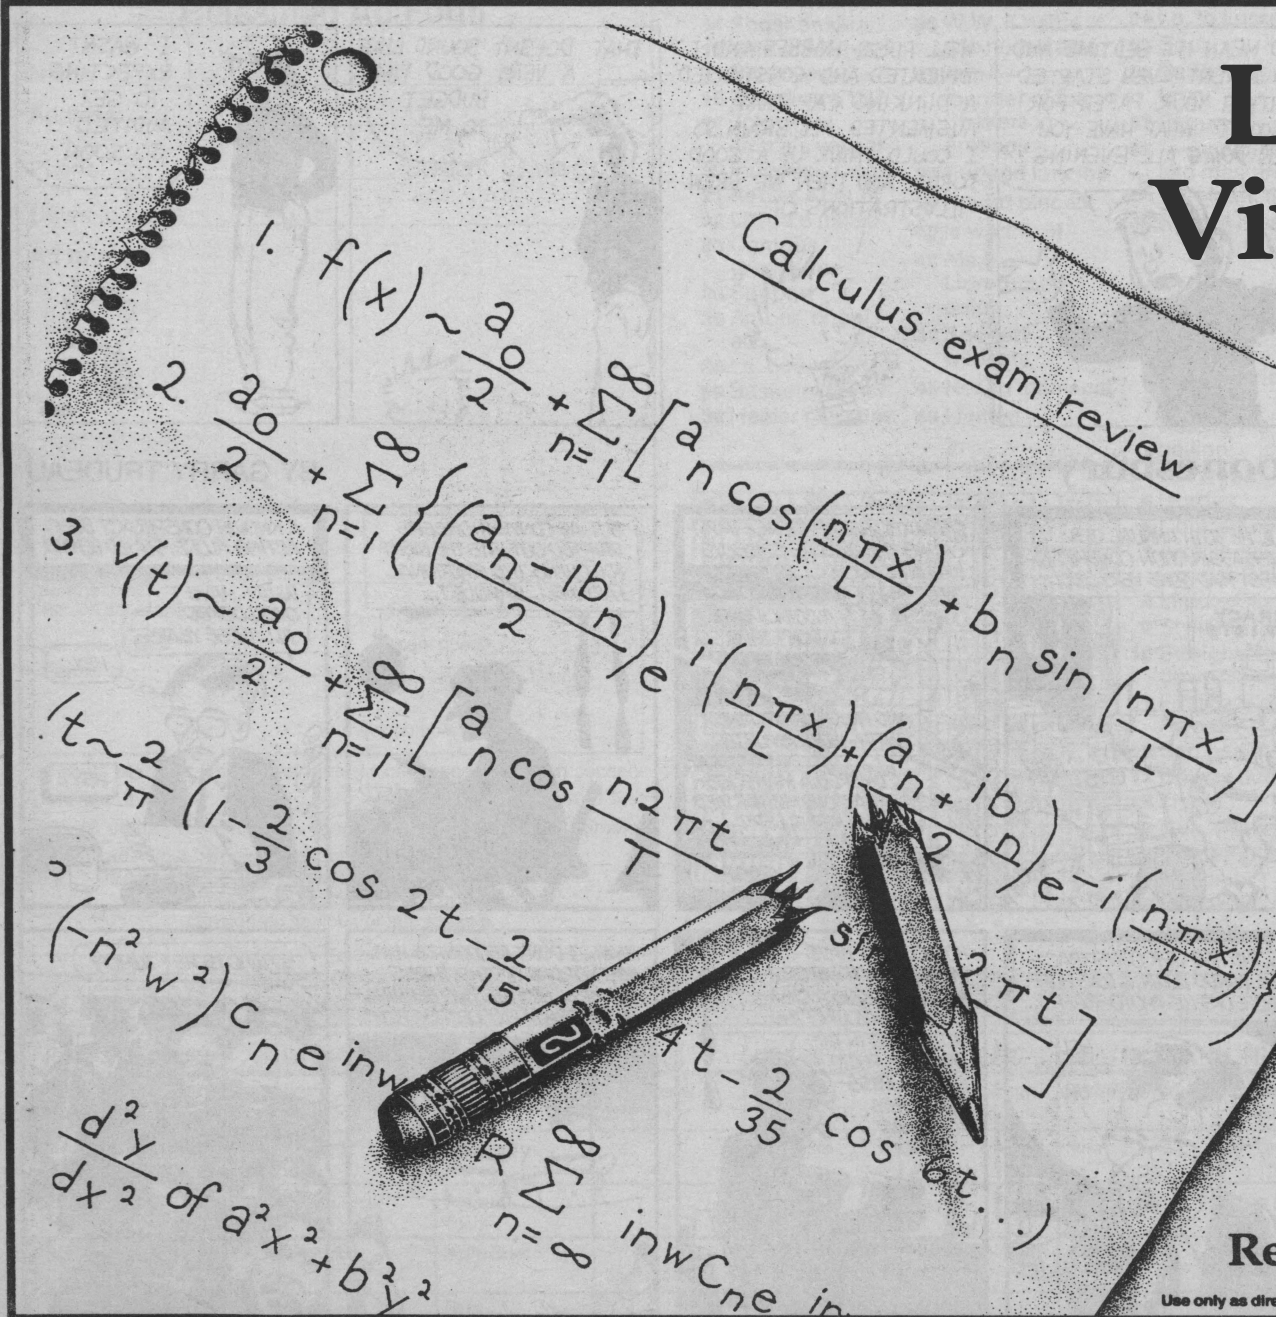 L
Vi
Calculus exam review
1. f(x) ~ a0/2 + ∑ n=1 ∞ [an cos (nπx/L) + bn sin (nπx/L)]
2. a0/2 + ∑ n=1 ∞ {(an-1bn/2) e i(nπx/L) + (an+ibn/2) e-i(nπx/L)}
3. v(t) ~ a0/2 + ∑ n=1 ∞ [an cos n2πt/T si 2πt]
(t~2/π (1-2/3 cos 2t-2/15 4t-2/35 cos 6t...)
(-n²w²) Cn e inw
R ∑ n=∞ ∞ inw Cn e in
d²y/dx² of a²x²+b²y²
2
Re
Use only as dire